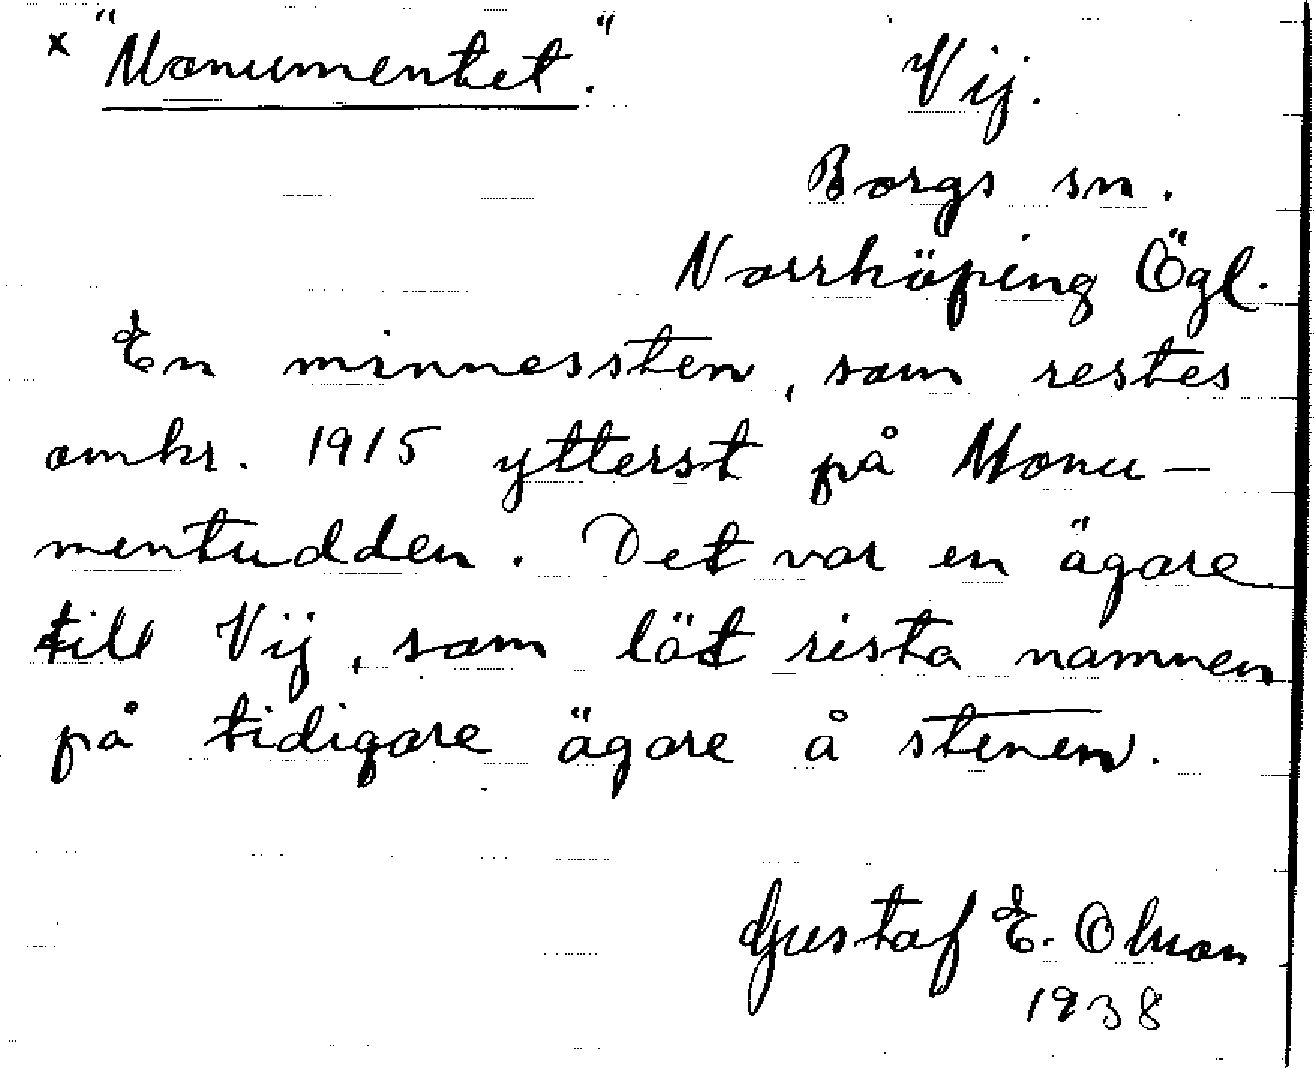 x "Monumentet."
Vij.
Borgs sn.
Norrköping Ögl.
En minnessten, som restes
omkr. 1915 ytterst på Monu-
mentudden. Det var en ägare
till Vij, som löt rista namnen
på tidigare ägare å stenen.
Gustaf E. Olsson
1938